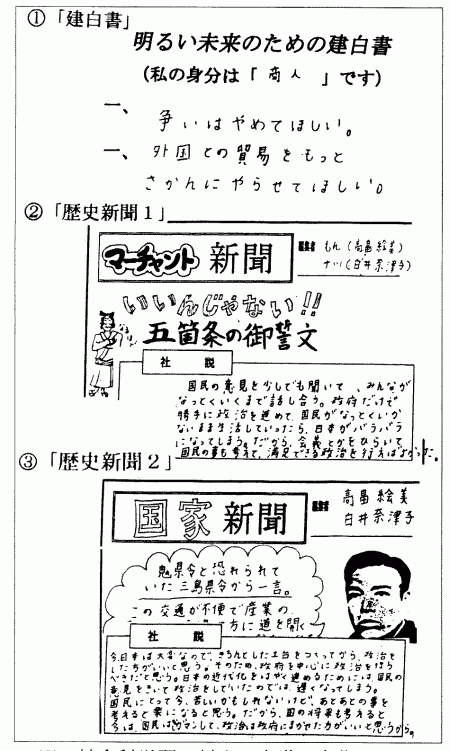 ①「建白書」
明るい未来のための建白書
(私の身分は「 商人 」です)
一、
争いはやめてほしい。
一、外国との貿易をもっと
さかんにやらせてほしい。
②「歴史新聞1」
マーチャント 新聞
もん(高畠絵美)
ナツ(白井奈津子)
いいんじゃない!!
五箇条の御誓文
社 説
国民の意見を少しでも聞いて、みんなが
なっとくいくまで話し合う。政府だけで
勝手に政治を進めて、国民がなっとくいか
ないまま生活していったら、日本がバラバラ
になってしまう。だから、会義とかをひらいて、
国民の事も考えて、満足できる政治を行えばよかった。
③「歴史新聞2」
国家 新聞
高畠絵美
白井奈津子
鬼県令と恐れられて
いた三島県令から一言。
この交通が不便で産業の
方に道を開く
社 説
今、日本は大変なので、きちんとした土台をつくってから、政治を
した方がいいと思う。そのため、政府を中心に政治を行う
べきだと思う。日本の近代化をはやく進めるためには、国民の
意見をきいて政治をしていたのでは、遅くなってしまう。
国民にとって今、苦しいかもしれないけど、あとあとの事を
考えると楽になると思う。だから、国の将来も考えると
今は、国民はガマンして、政治は政府にまかせた方がいいと思うから。